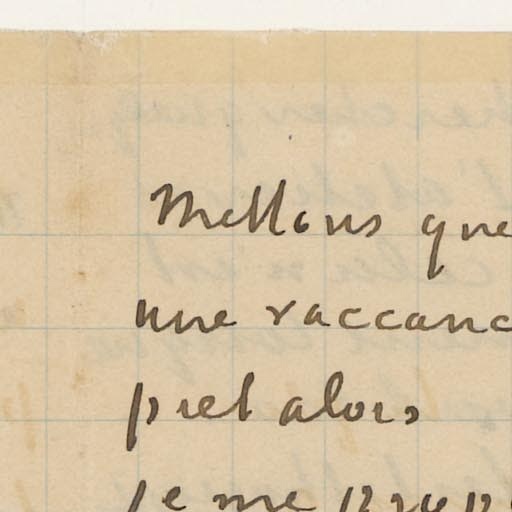 Mettons que
une raccanc
pret alors
je me